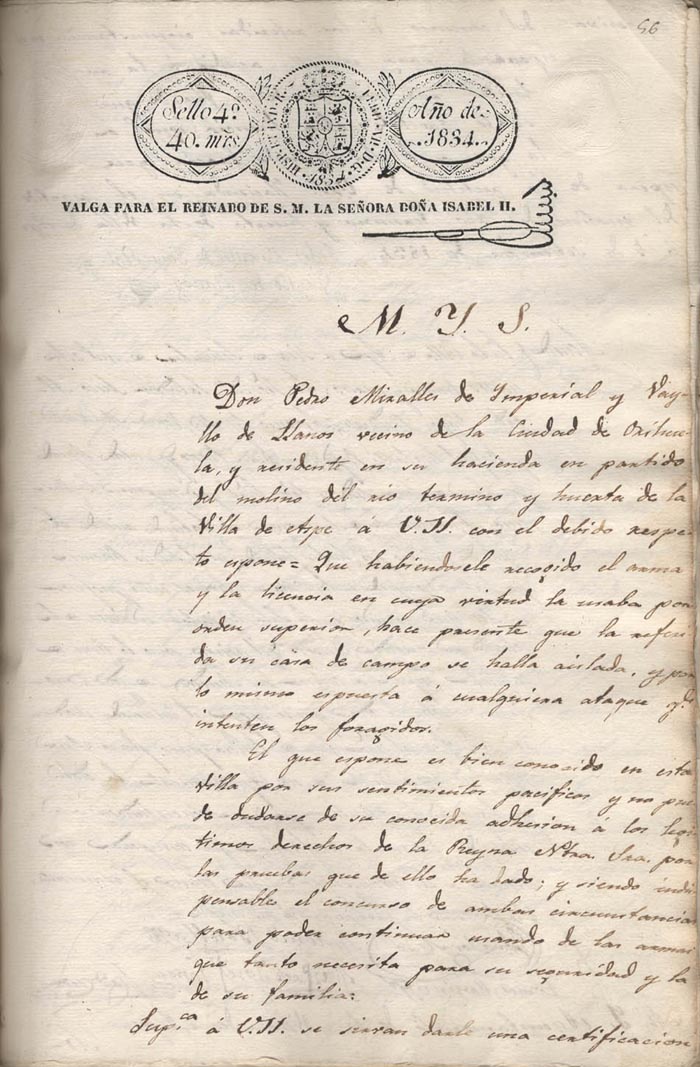 56
Sello 4º
40. mrs.
Año de
1834.
VALGA PARA EL REINADO DE S. M. LA SEÑORA DOÑA ISABEL II.
M. Y. S.
Don Pedro Miralles de Imperial y Vay-
llo de Llanos vecino de la Ciudad de Orihue-
la, y residente en su hacienda en partido
del molino del rio termino y huerta de la
Villa de Aspe á V.SS. con el debido respe-
to espone= Que habiendosele recogido el arma
y la licencia en cuya virtud la usaba por
orden superior, hace presente que la referi-
da su casa de campo se halla aislada, y por
lo mismo espuesta á cualquiera ataque q.e
intenten los foragidos.
El que espone es bien conocido en esta
Villa por sus sentimientos pacificos y no pue-
de dudarse de su conocida adhesion á los legi-
timos derechos de la Reyna Ntra. Sra. por
las pruebas que de ello ha dado; y siendo indis-
pensable el concurso de ambas circunstancias
para poder continuar usando de las armas
que tanto necesita para su seguridad y la
de su familia:
Sup.ca á V.SS. se sirvan darle una certificacion